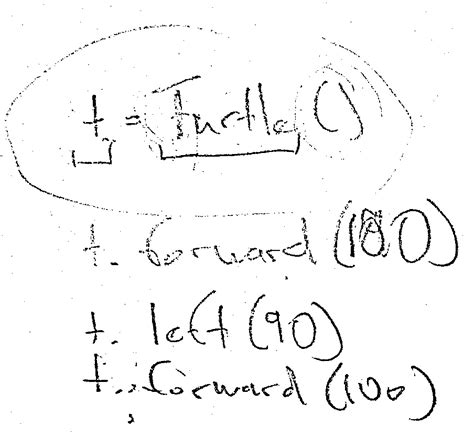 t = Turtle()
t. forward(100)
t. left(90)
t. forward(100)